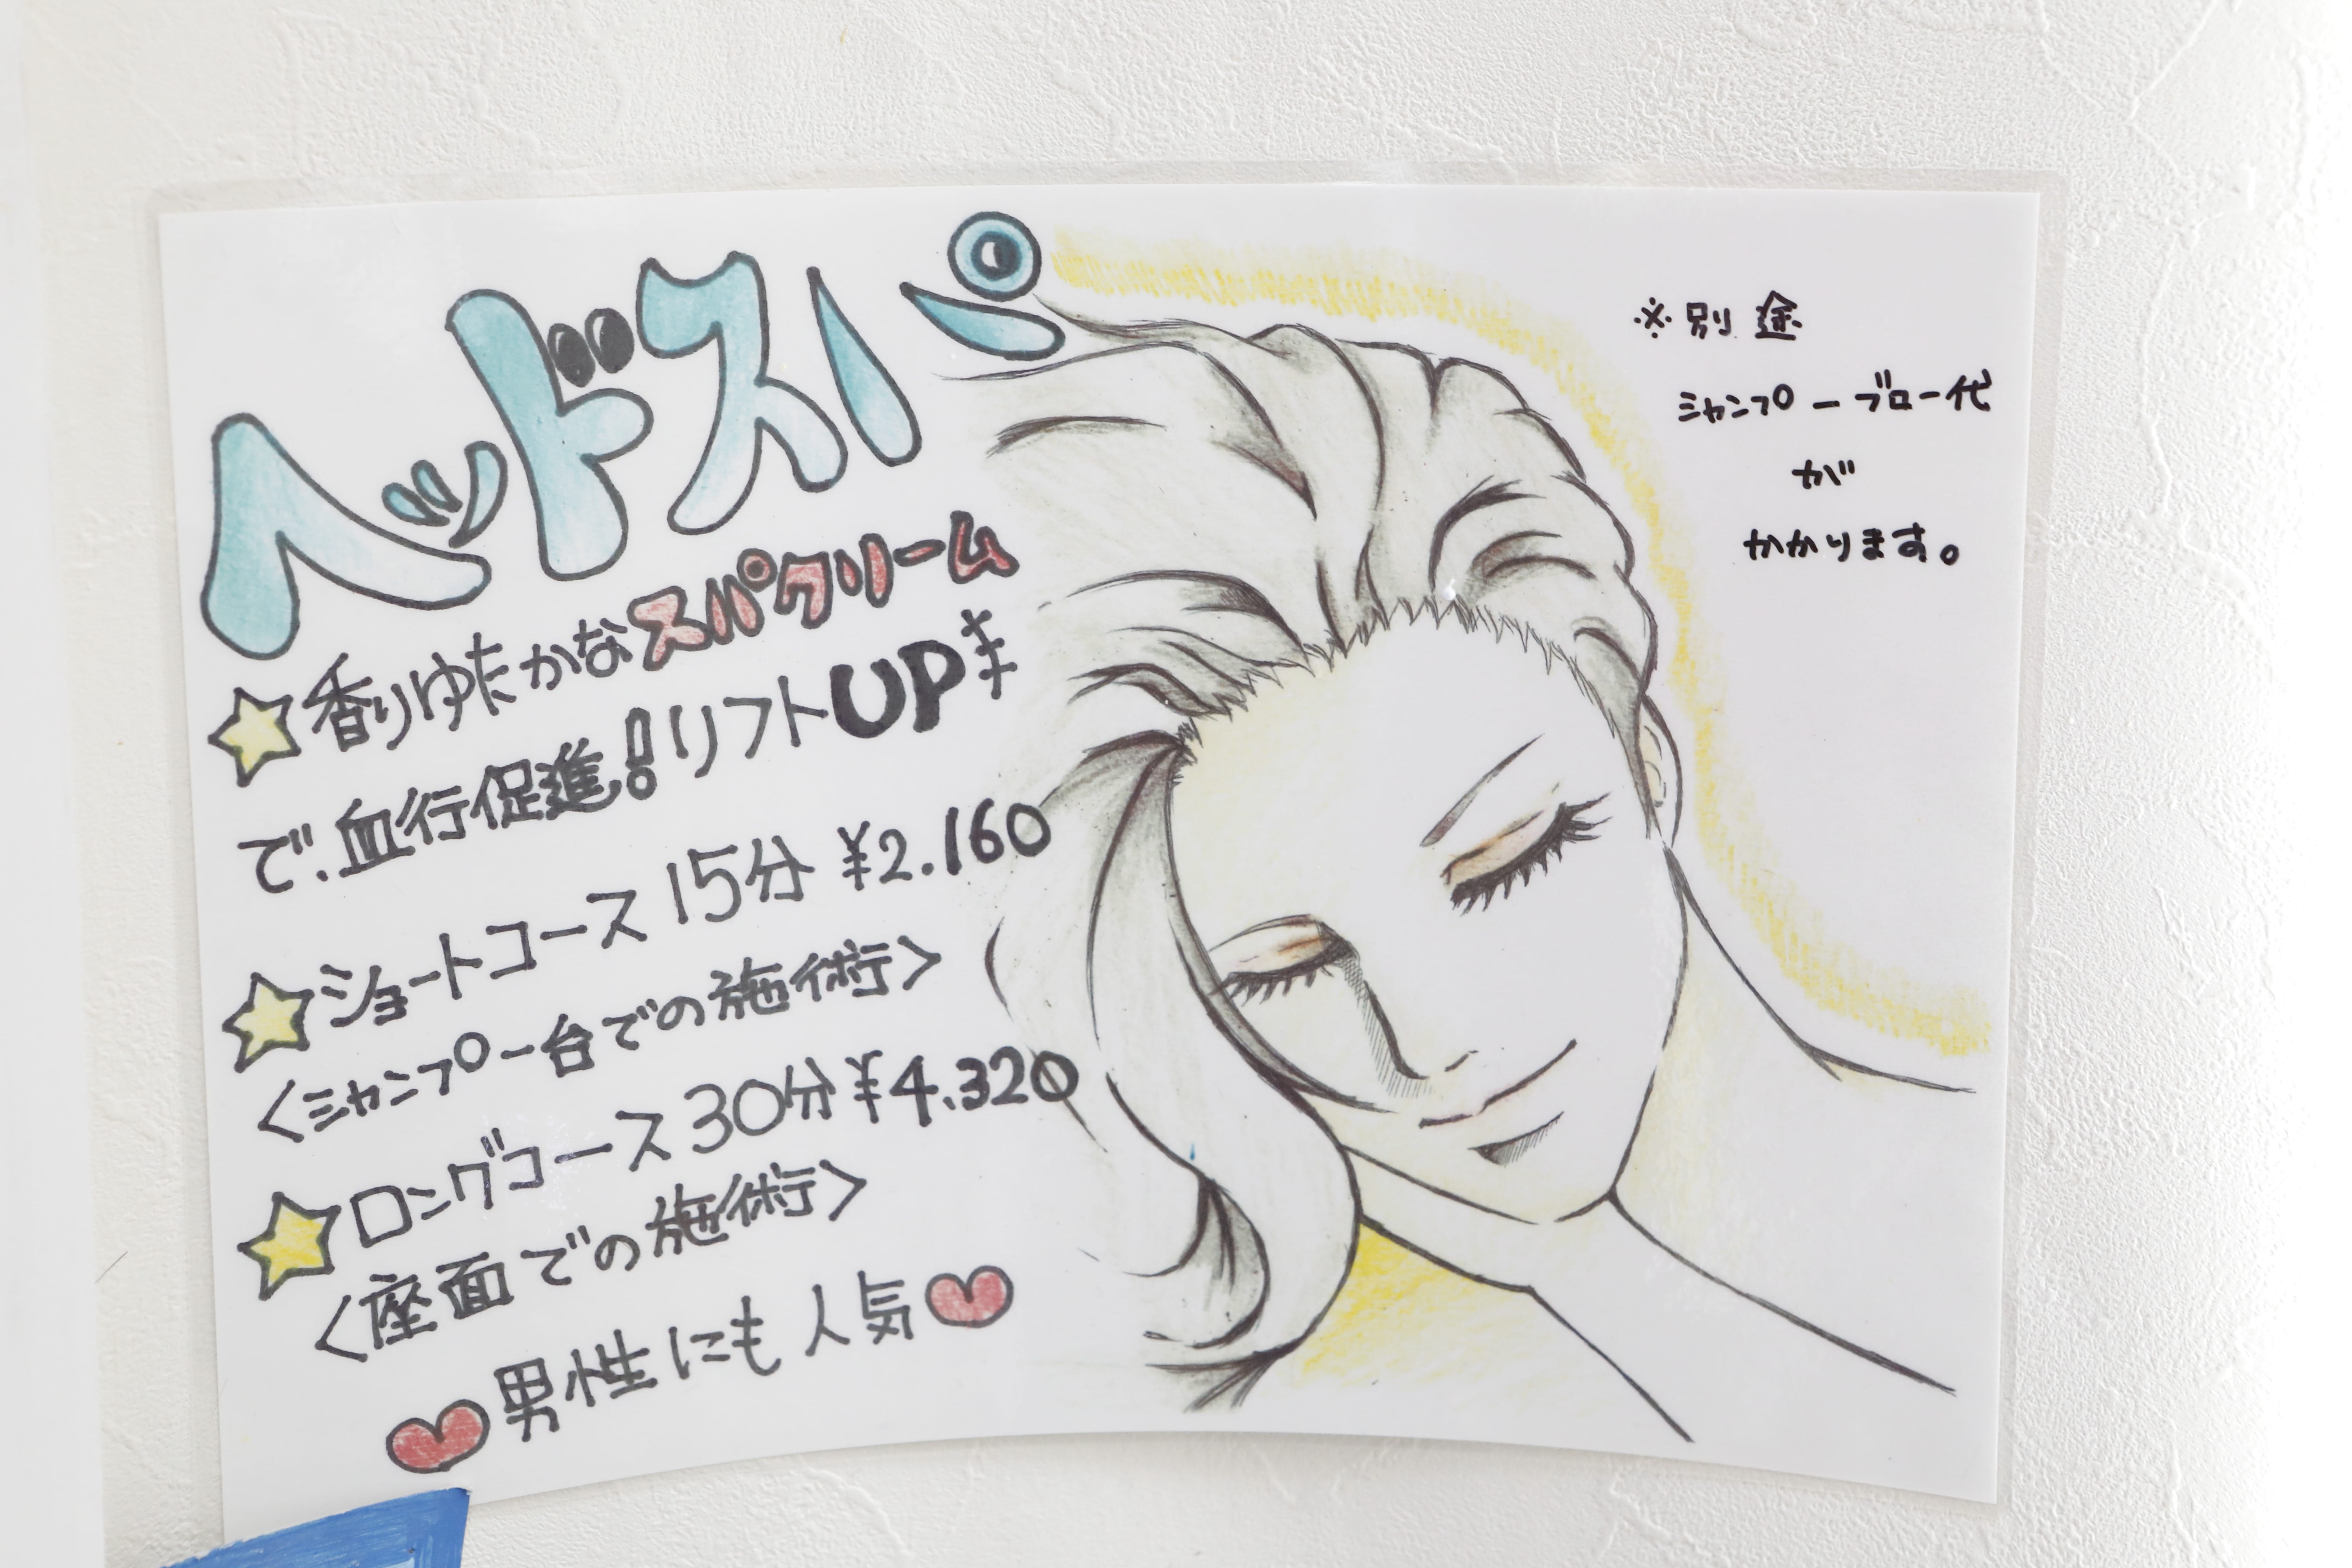 ヘッドスパ
☆香りゆたかなスパクリーム
で、血行促進!リフトUP
☆ショートコース 15分 ¥2.160
<シャンプー台での施術>
☆ロングコース 30分 ¥4.320
<座面での施術>
♥男性にも人気♥
※別途
シャンプーブロー代
が
かかります。